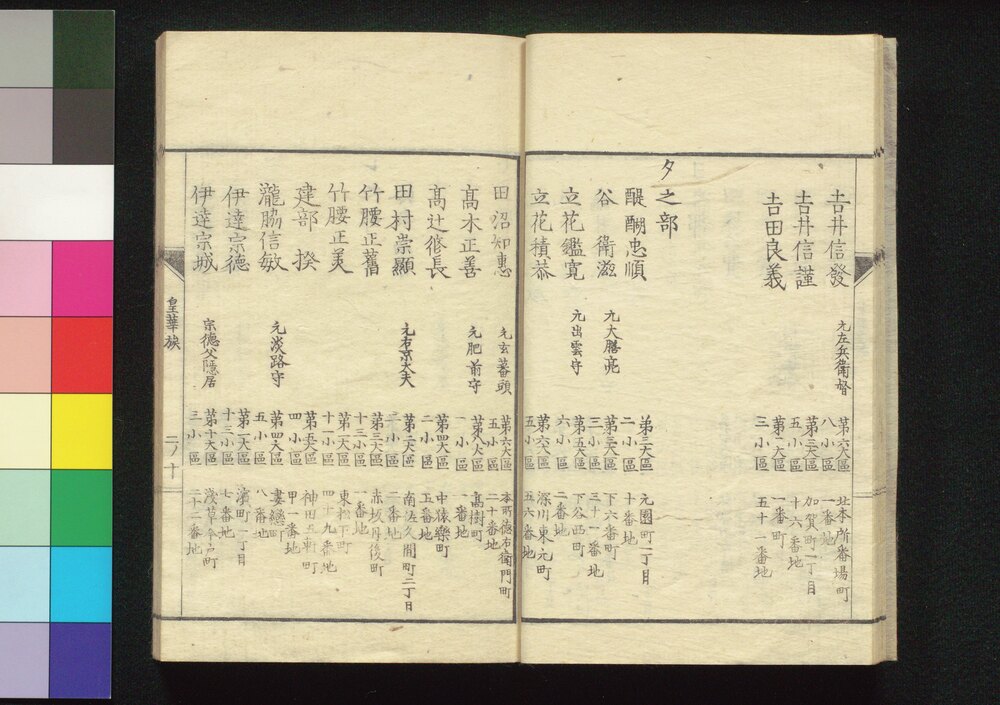 吉井信發 元左兵衛督 第六大區八小區 北本所番場町一番地
吉井信謹 第三大區五小區 加賀町一丁目十六番地
吉田良義 第一大區三小區 一番町五十一番地
タ之部
醍醐忠順 第三大區二小區 元園町一丁目十番地
谷衛滋 元大膳亮 第三大區三小區 下六番町三十一番地
立花鑑寛 元出雲守 第五大區六小區 下谷西町二番地
立花積恭 第六大區五小區 深川東元町五六番地
田沼知惠 元玄蕃頭 第六大區五小區 本所德右衛門町二十番地
髙木正善 元肥前守 第八大區一小區 髙樹町一番地
髙辻修長 第四大區二小區 中猿樂町五番地
田村崇顯 元右京大夫 第二大區二小區 南佐久間町二丁目二番地
竹腰正舊 第三大區十三小區 赤坂丹後町一番地
竹腰正美 第二大區十一小區 東松下町四十九番地
建部揆 第五大區四小區 神田五軒町甲一番地
瀧脇信敏 元淡路守 第四大區五小區 妻戀町八番地
伊達宗德 第二大區十三小區 濱町一丁目七番地
伊達宗城 宗德父隱居 第十大區三小區 淺草今戸町二十二番地
皇華族 二ノ十